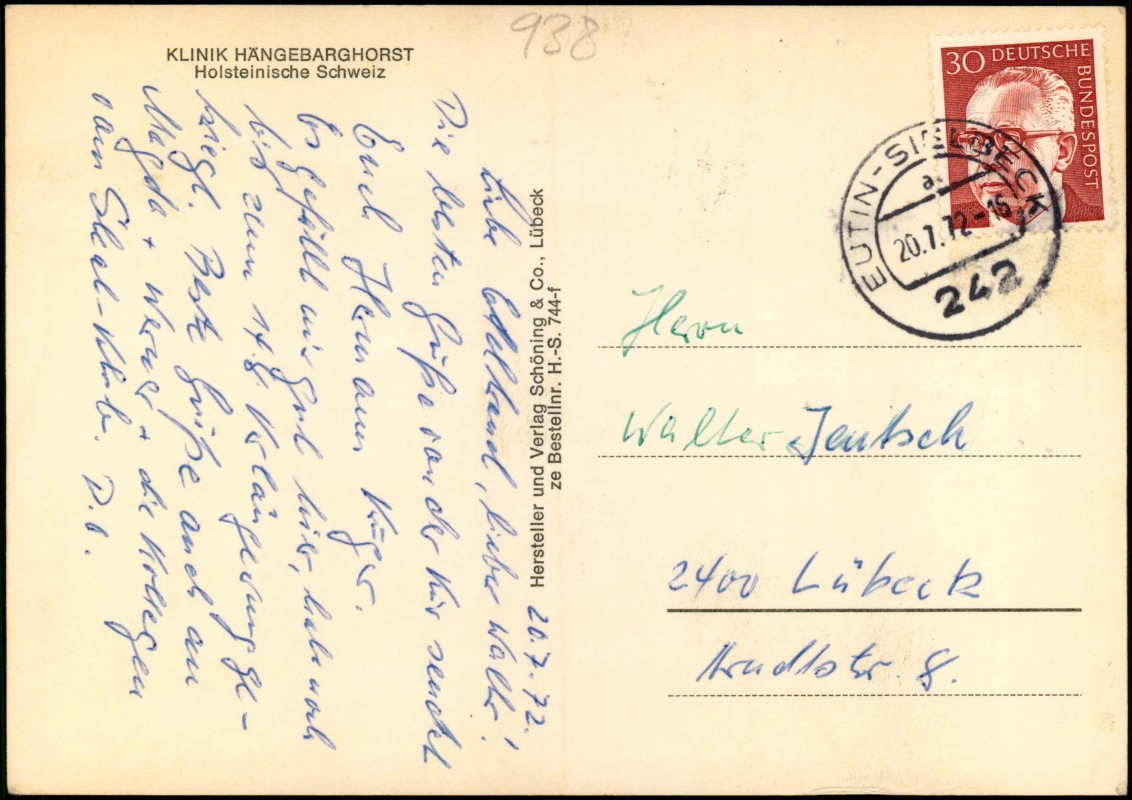 938
KLINIK HÄNGEBARGHORST
Holsteinische Schweiz
20.7.72.
Liebe lieber Walter!
Die besten Grüße von der Kur sendet
Euch Hermann
Es gefällt mir gut hier, habe noch
bis zum 14.8. Verlängerung ge-
kriegt. Beste Grüße auch an
Magda + Werner + die Kollegen
vom
D.O.
Hersteller und Verlag Schöning & Co., Lübeck
ze Bestellnr. H.-S. 744-f
30 DEUTSCHE BUNDESPOST
EUTIN-SIELBECK
a
20.7.72-15
242
Herrn
Walter Jentsch
2400 Lübeck
Arndtstr. 8.